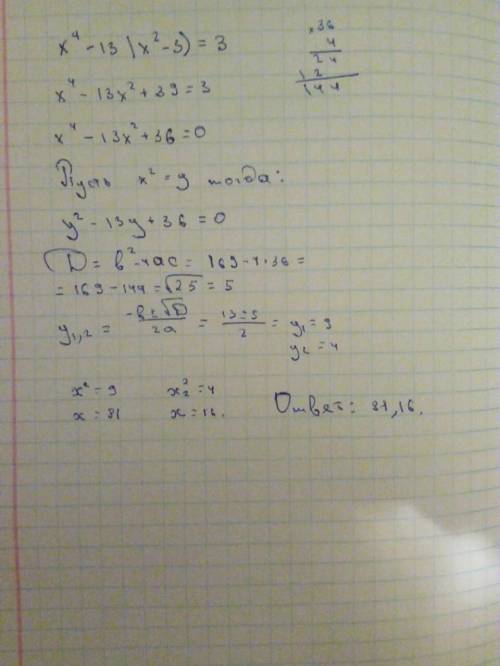 x⁴ - 13 (x² - 3) = 3
x⁴ - 13x² + 39 = 3
x⁴ - 13x² + 36 = 0
Пусть x² = y тогда:
y² - 13y + 36 = 0
D = b² - 4ac = 169 - 4·36 =
= 169 - 144 = √25 = 5
y₁,₂ = (-b ± √D)/2a = (13 ± 5)/2 = y₁ = 9
y₂ = 4
x² = 9 x₂² = 4
x = 81 x = 16.
Ответ: 81, 16.
×36
4
24
12
144